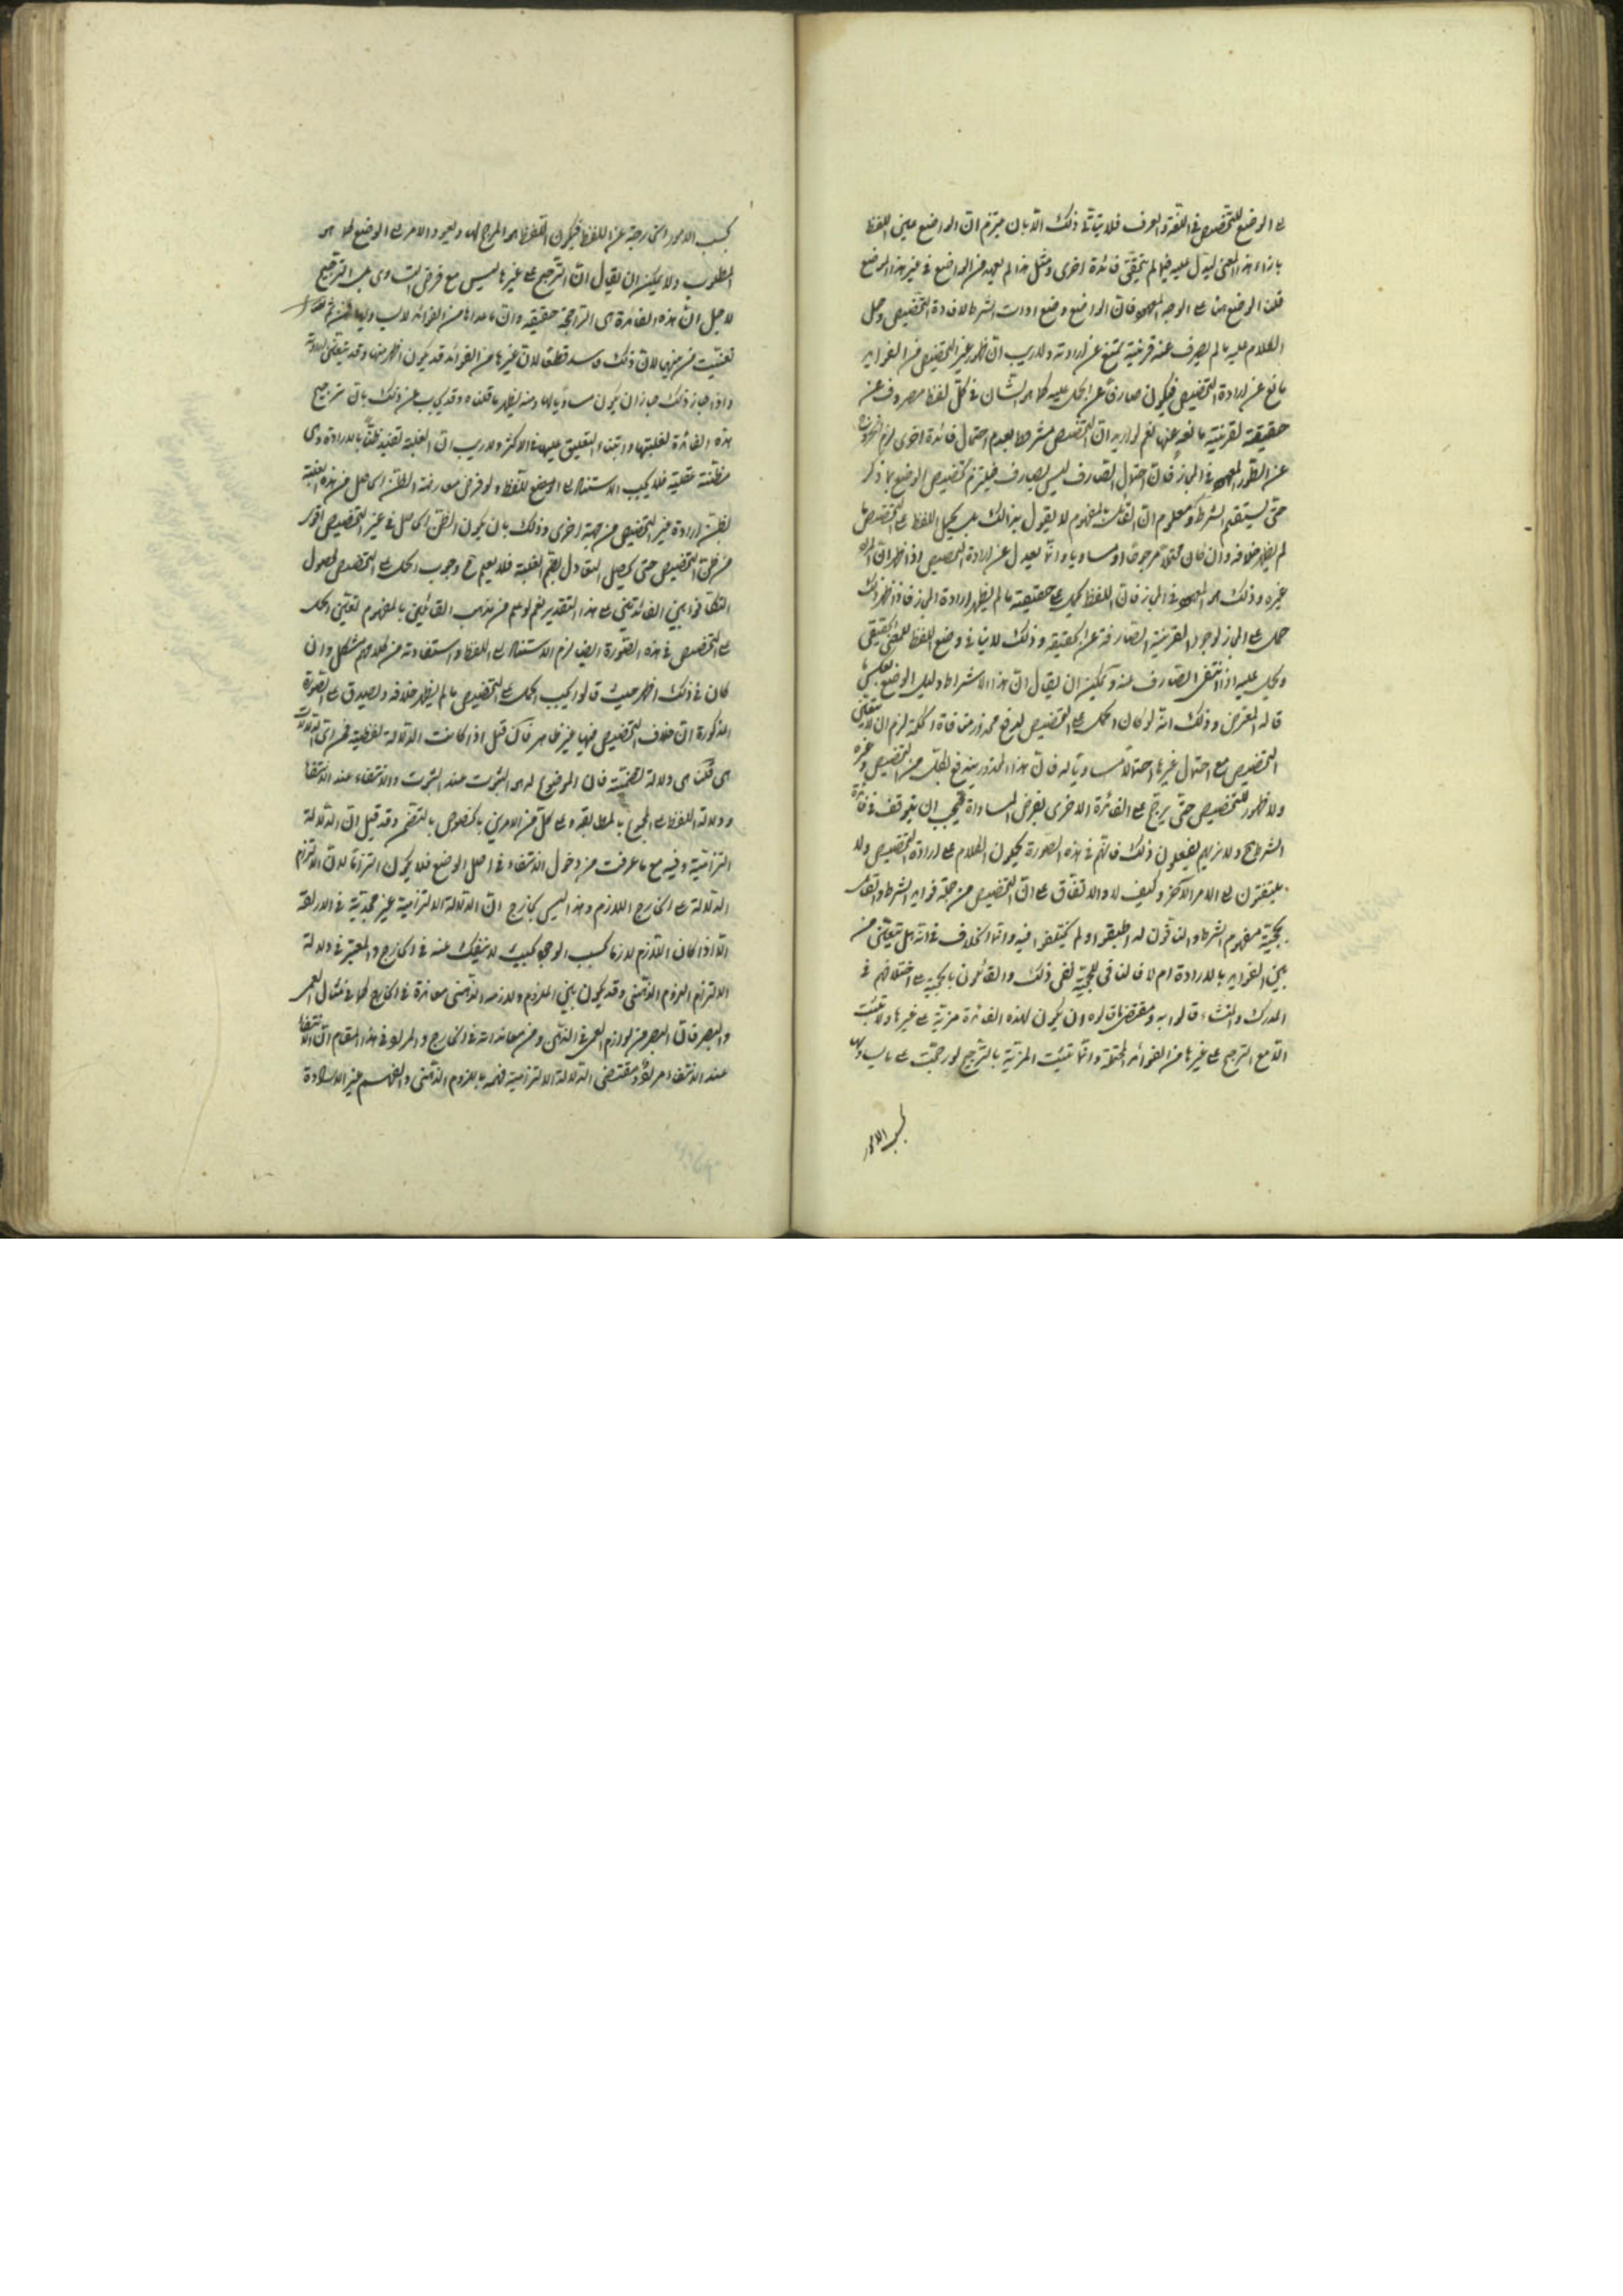 على الوضع للتخصيص في اللغة والعرف فلا يتأتى ذلك الا بان يلتزم ان الواضع عين اللفظ
بازاء هذا المعنى ليدل عليه فيما لم يتحقق فائدة اخرى ومثل هذا لم يعهد من الواضع في غير هذا الموضع
قلنا الوضع هنا على الوجه المعهود فان الواضع وضع ادوات الشرط لافادة التخصيص وحمل
الكلام عليه ما لم يصرف عنه قرينة تمنع عن ارادته ولا ريب ان ظهور غير التخصيص من الفوايد
مانع عن ارادة التخصيص فيكون صارفا عن الحمل عليه كما هو الشأن في كل لفظ مصروف عن
حقيقته لقرينة مانعة عنها نعم لو اريد ان التخصيص مشروط بعدم احتمال فائدة اخرى لزم الخروج
عن الطور المعهود في المجاز فان احتمال الصارف ليس بصارف فيلتزم تخصيص الوضع بما ذكر
حتى يستقيم الشرط ومعلوم ان القائل بالمفهوم لا يقول بذلك بل يحمل اللفظ على التخصيص ما
لم يظهر خلافه وان كان محتملا مرجوحا او مساويا وانما يعدل عن ارادة التخصيص اذا ظهر ان المراد
غيره وذلك هو المعهود في المجاز فان اللفظ يحمل على حقيقته ما لم يظهر ارادة المجاز فاذا ظهر ذلك
حمل على المجاز لوجود القرينة الصارفة عن الحقيقة وذلك لا ينافي وضع اللفظ للمعنى الحقيقي
ويحمل عليه اذا انتفى الصارف عنه ويمكن ان يقال ان هذا الاشتراط دليل الوضع بعكس ما
قاله المعترض وذلك انه لو كان الحمل على التخصيص لدفع محذور منافاة الحكمة لزم ان لا يتعين
التخصيص مع احتمال غيرها احتمالا مساويا له فان هذا المحذور يندفع بكل من التخصيص وغيره
ولا ظهور للتخصيص حتى يرجح على الفائدة الاخرى بفرض المساواة فيجب ان يتوقف في فائدة
الشرط ح ولا نراهم يفعلون ذلك فانهم في هذه الصورة يحملون الكلام على ارادة التخصيص ولا
يلتفتون الى الامر الآخر وكيف لا والاتفاق على ان التخصيص من جملة فوايد الشرط والقائل
بحجية مفهوم الشرط والنافون له اطبقوا ولم يختلفوا فيه وانما الخلاف في انه هل يتعين من
بين الفوايد بالارادة ام لا فالنافي للحجية نفى ذلك والقائلون بالحجية على اختلافهم في
المدرك والمنشاء قالوا به ومقتضى ما قالوه ان يكون لهذه الفائدة مزية على غيرها ولا تثبت
الا مع الترجيح على غيرها من الفوائد المحتملة وانما تثبت المزية بالترجيح لو رجحت على ما يساويها
بحسب الامور
بحسب الامور الخارجة عن اللفظ فيكون اللفظ هو المرجح لها ويعود الامر الى الوضع كما هو
المطلوب ولا يمكن ان يقال ان الترجيح على غيرها ليس مع فرض التساوي بل الترجيح
لاجل ان هذه الفائدة هي الراجحة حقيقة وان ما عداها من الفوائد لا يساويها فمن ثم
تعينت من بينها لان ذلك فاسد قطعا لان غيرها من الفوائد قد يكون اظهر منها وقد يتعين ارادته
واذا جاز ذلك جاز ان يكون مساويا لها ومنه يظهر ما قلناه وقد يجاب عن ذلك بان ترجيح
هذه الفائدة لغلبتها وابتناء التعليق عليها في الاكثر ولا ريب ان الغلبة تفيد ظنا بالارادة وهي
مظنة عقلية فلا يجب الاستناد الى الوضع للفظ ولو فرض معارضة الظن الحاصل من هذه الغلبة
بظن ارادة غير التخصيص من جهة اخرى وذلك بان يكون الظن الحاصل في غير التخصيص اقوى
من ظن التخصيص حتى يحصل التعادل بضم الغلبة فلا يعلم ح وجوب الحمل على التخصيص لحصول
التكافؤ بين الفائدتين على هذا التقدير نعم لو علم من مذهب القائلين بالمفهوم تعين الحمل
على التخصيص في هذه الصورة ايضا لزم الاستناد الى اللفظ واستفادته من كلامهم مشكل وان
كان في ذلك اظهر حيث قالوا يجب الحمل على التخصيص ما لم يظهر خلافه ويصدق على الصورة
المذكورة ان خلاف التخصيص فيها غير ظاهر فان قيل اذا كانت الدلالة لفظية فمن اي الدلالات
هي قلنا هي دلالة تضمنية فان الموضوع له هو الثبوت عند الثبوت والانتفاء عند الانتفاء
ودلالة اللفظ على المجموع بالمطابقة وعلى كل من الامرين بالخصوص بالتضمن وقد قيل ان الدلالة
التزامية وفيه مع ما عرفت من دخول الانتفاء في اصل الوضع فلا يكون التزاما لان الالتزام
الدلالة على الخارج اللازم وهذا ليس بخارج ان الدلالة الالتزامية غير مجدية في الدلالة
الا اذا كان اللازم لازما بحسب الوجود بحيث لا ينفك عنه في الخارج والمعتبر في دلالة
الالتزام اللزوم الذهني وقد يكون بين الملزوم ولازمه الذهني معاندة في الخارج كما في مثال العمى
والبصر فان البصر من لوازم العمى في الذهن ومن معانداته في الخارج والمراد في هذا المقام ان الانتفاء
عند الانتفاء مراد ومقتضى الدلالة الالتزامية فهمه باللزوم الذهني والفهم غير الارادة